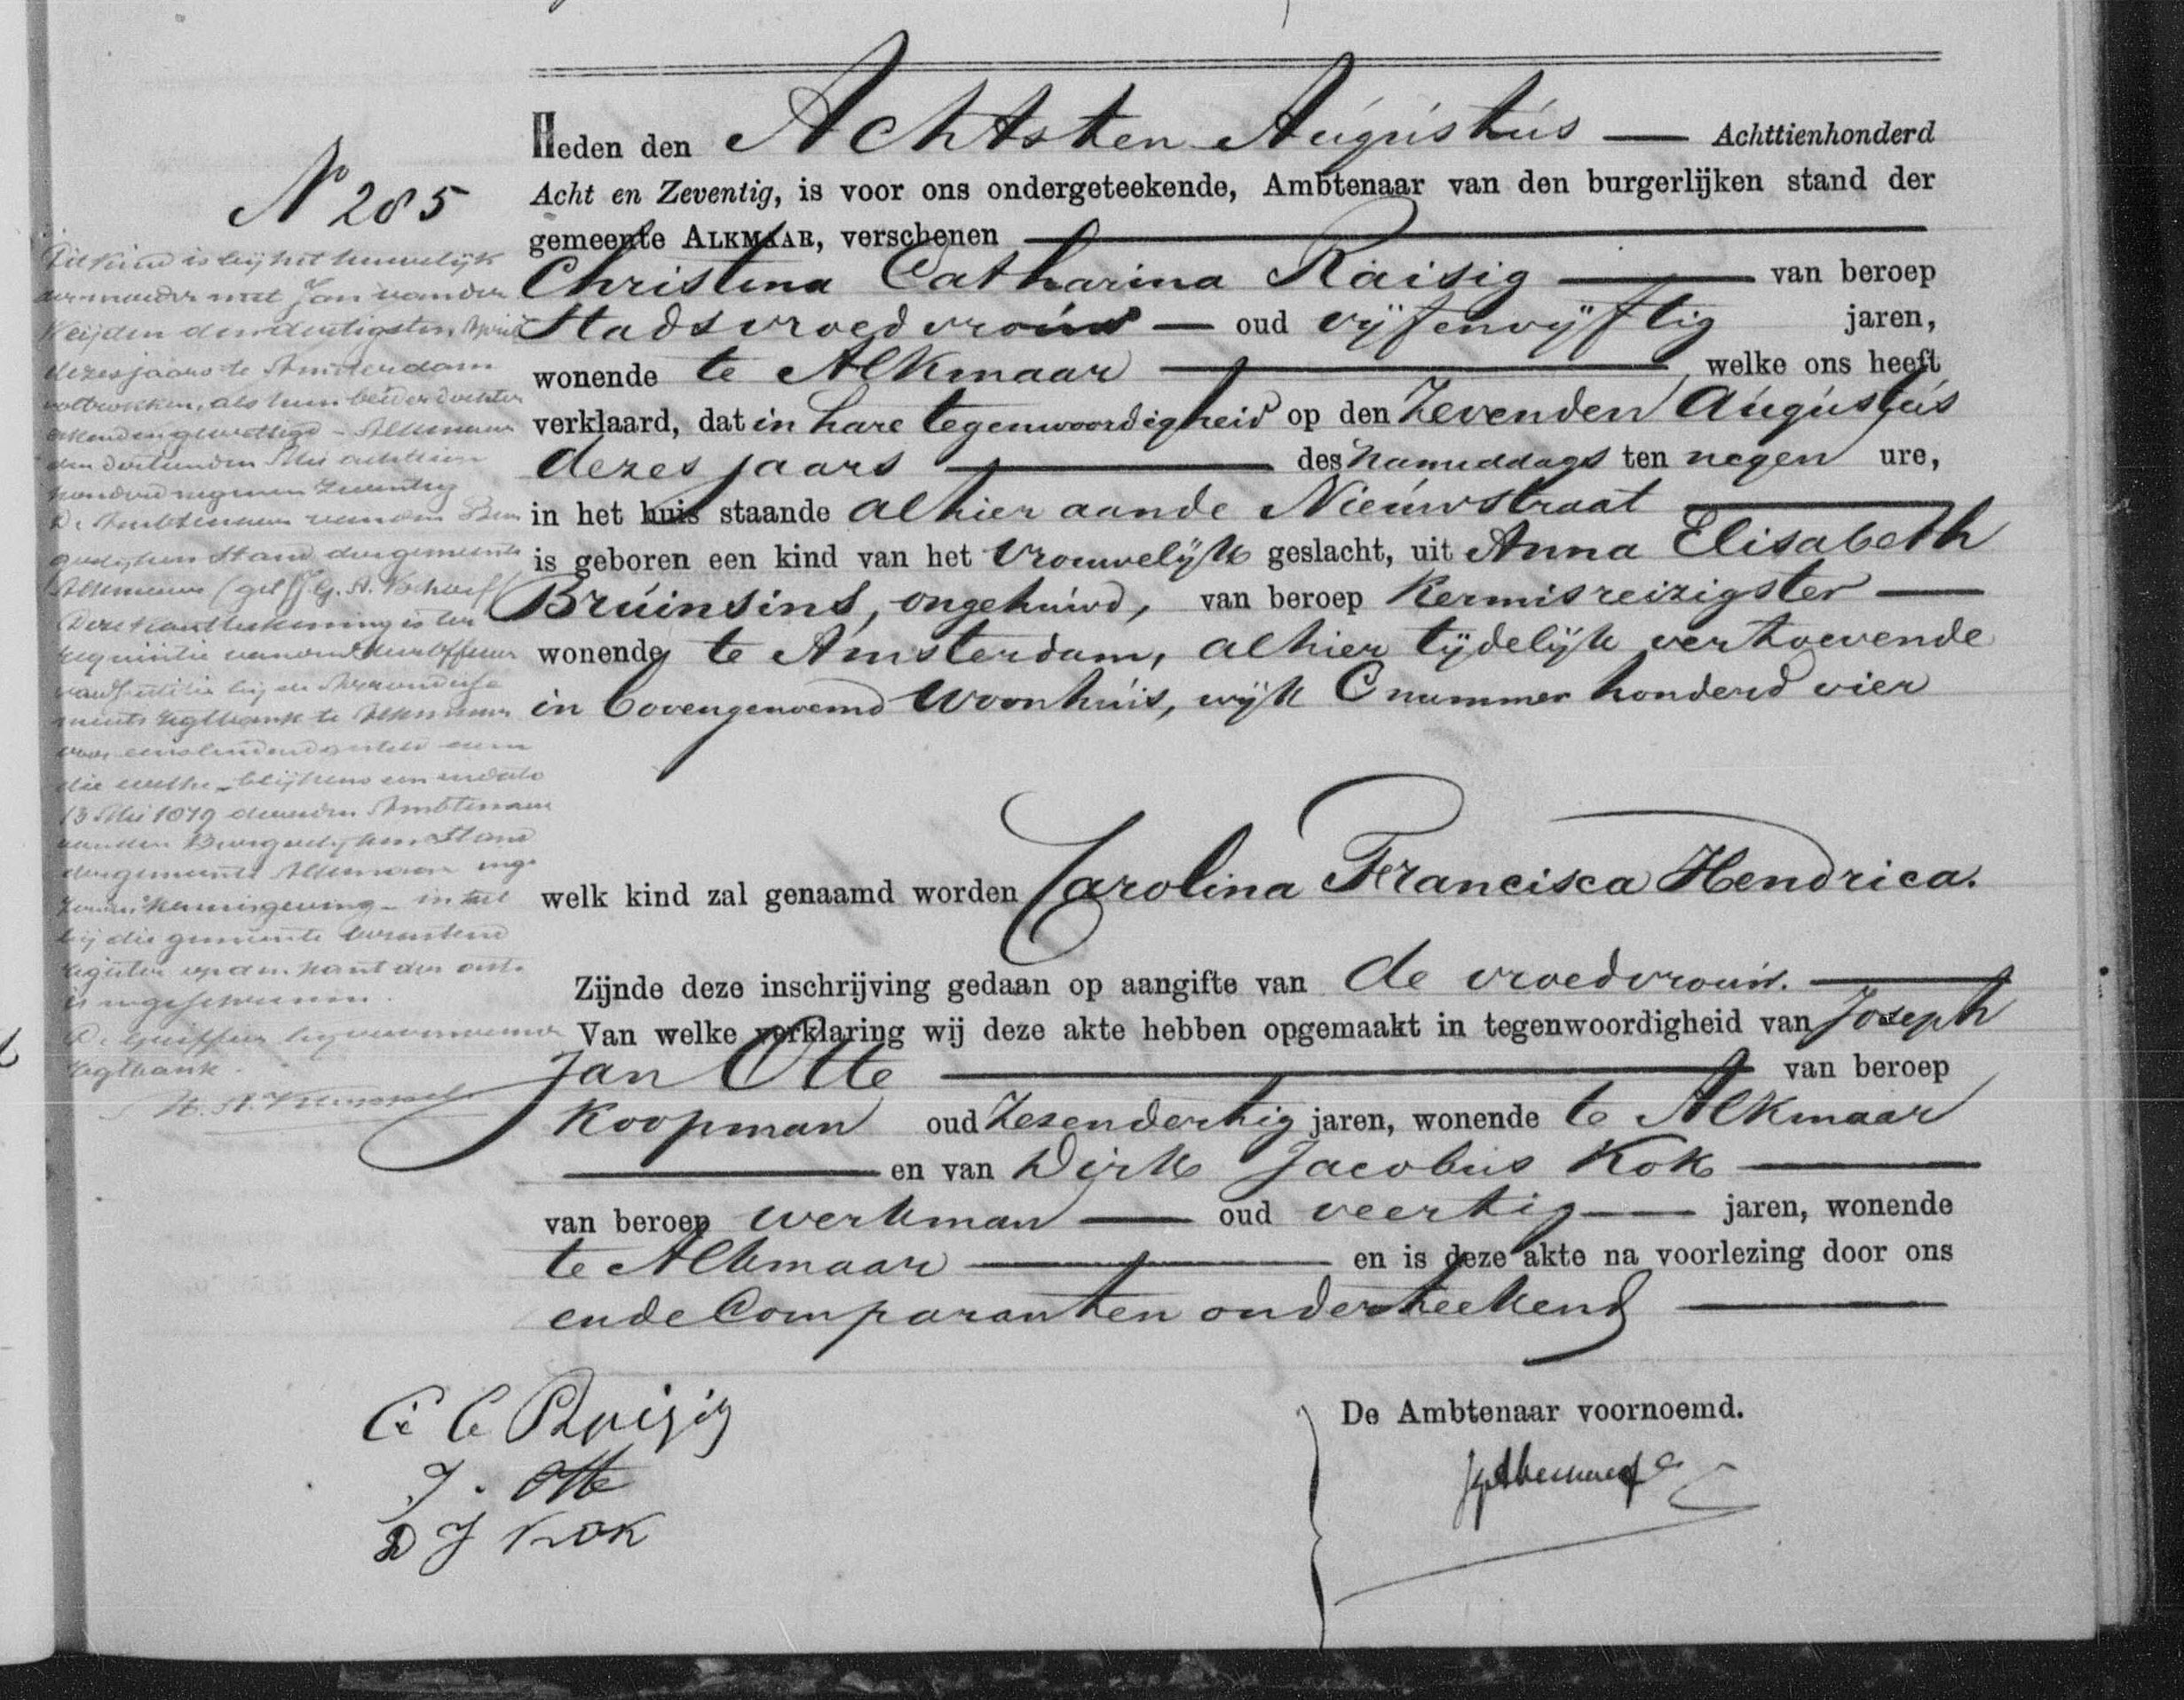 Nº 285
Dit kind is bij het huwelijk
der moeder met Jan van der
Heijden den dertigsten April
dezes jaars te Amsterdam
voltrokken, als hun beider dochter
erkend en gewettigd - Alkmaar
den dertienden Mei achttien
honderd negen en zeventig
De Ambtenaar van den Bur
gerlijken Stand der gemeente
Alkmaar (get)
Deze kantteekening is ter
requisitie van den Heer Officier
van Justitie bij de Arrondisse
ments Regtbank te Alkmaar
voor eensluidend gesteld aan
die welke - blijkens een in dato
13 Mei 1879 door den Ambtenaar
van den Burgerlijken Stand
der gemeente Alkmaar inge
zonden kennisgeving - in het
bij die gemeente berustend
register op den kant der acte
is ingeschreven.
De Griffier bij voornoemde
Regtbank.
Heden den Achtsten Augustus — Achttienhonderd
Acht en Zeventig, is voor ons ondergeteekende, Ambtenaar van den burgerlijken stand der
gemeente ALKMAAR, verschenen
Christina Catharina Raisig — van beroep
Stadsvroedvrouw — oud vijfenvijftig jaren,
wonende te Alkmaar — welke ons heeft
verklaard, dat in hare tegenwoordigheid op den Zevenden Augustus
dezes jaars — des namiddags ten negen ure,
in het huis staande alhier aan de Nieuwstraat
is geboren een kind van het Vrouwelijk geslacht, uit Anna Elisabeth
Bruinsins, ongehuwd, van beroep Kermisreizigster —
wonende te Amsterdam, alhier tijdelijk vertoevende
in bovengenoemd Woonhuis, wijk C nummer honderd vier
welk kind zal genaamd worden Carolina Francisca Hendrica.
Zijnde deze inschrijving gedaan op aangifte van de vroedvrouw.
Van welke verklaring wij deze akte hebben opgemaakt in tegenwoordigheid van Joseph
Jan Otte — van beroep
Koopman oud Zesendertig jaren, wonende te Alkmaar
— en van Dirk Jacobus Kok —
van beroep werkman — oud veertig — jaren, wonende
te Alkmaar — en is deze akte na voorlezing door ons
en de Comparanten onderteekend
C C Raisig
J. Otte
D J Kok
De Ambtenaar voornoemd.